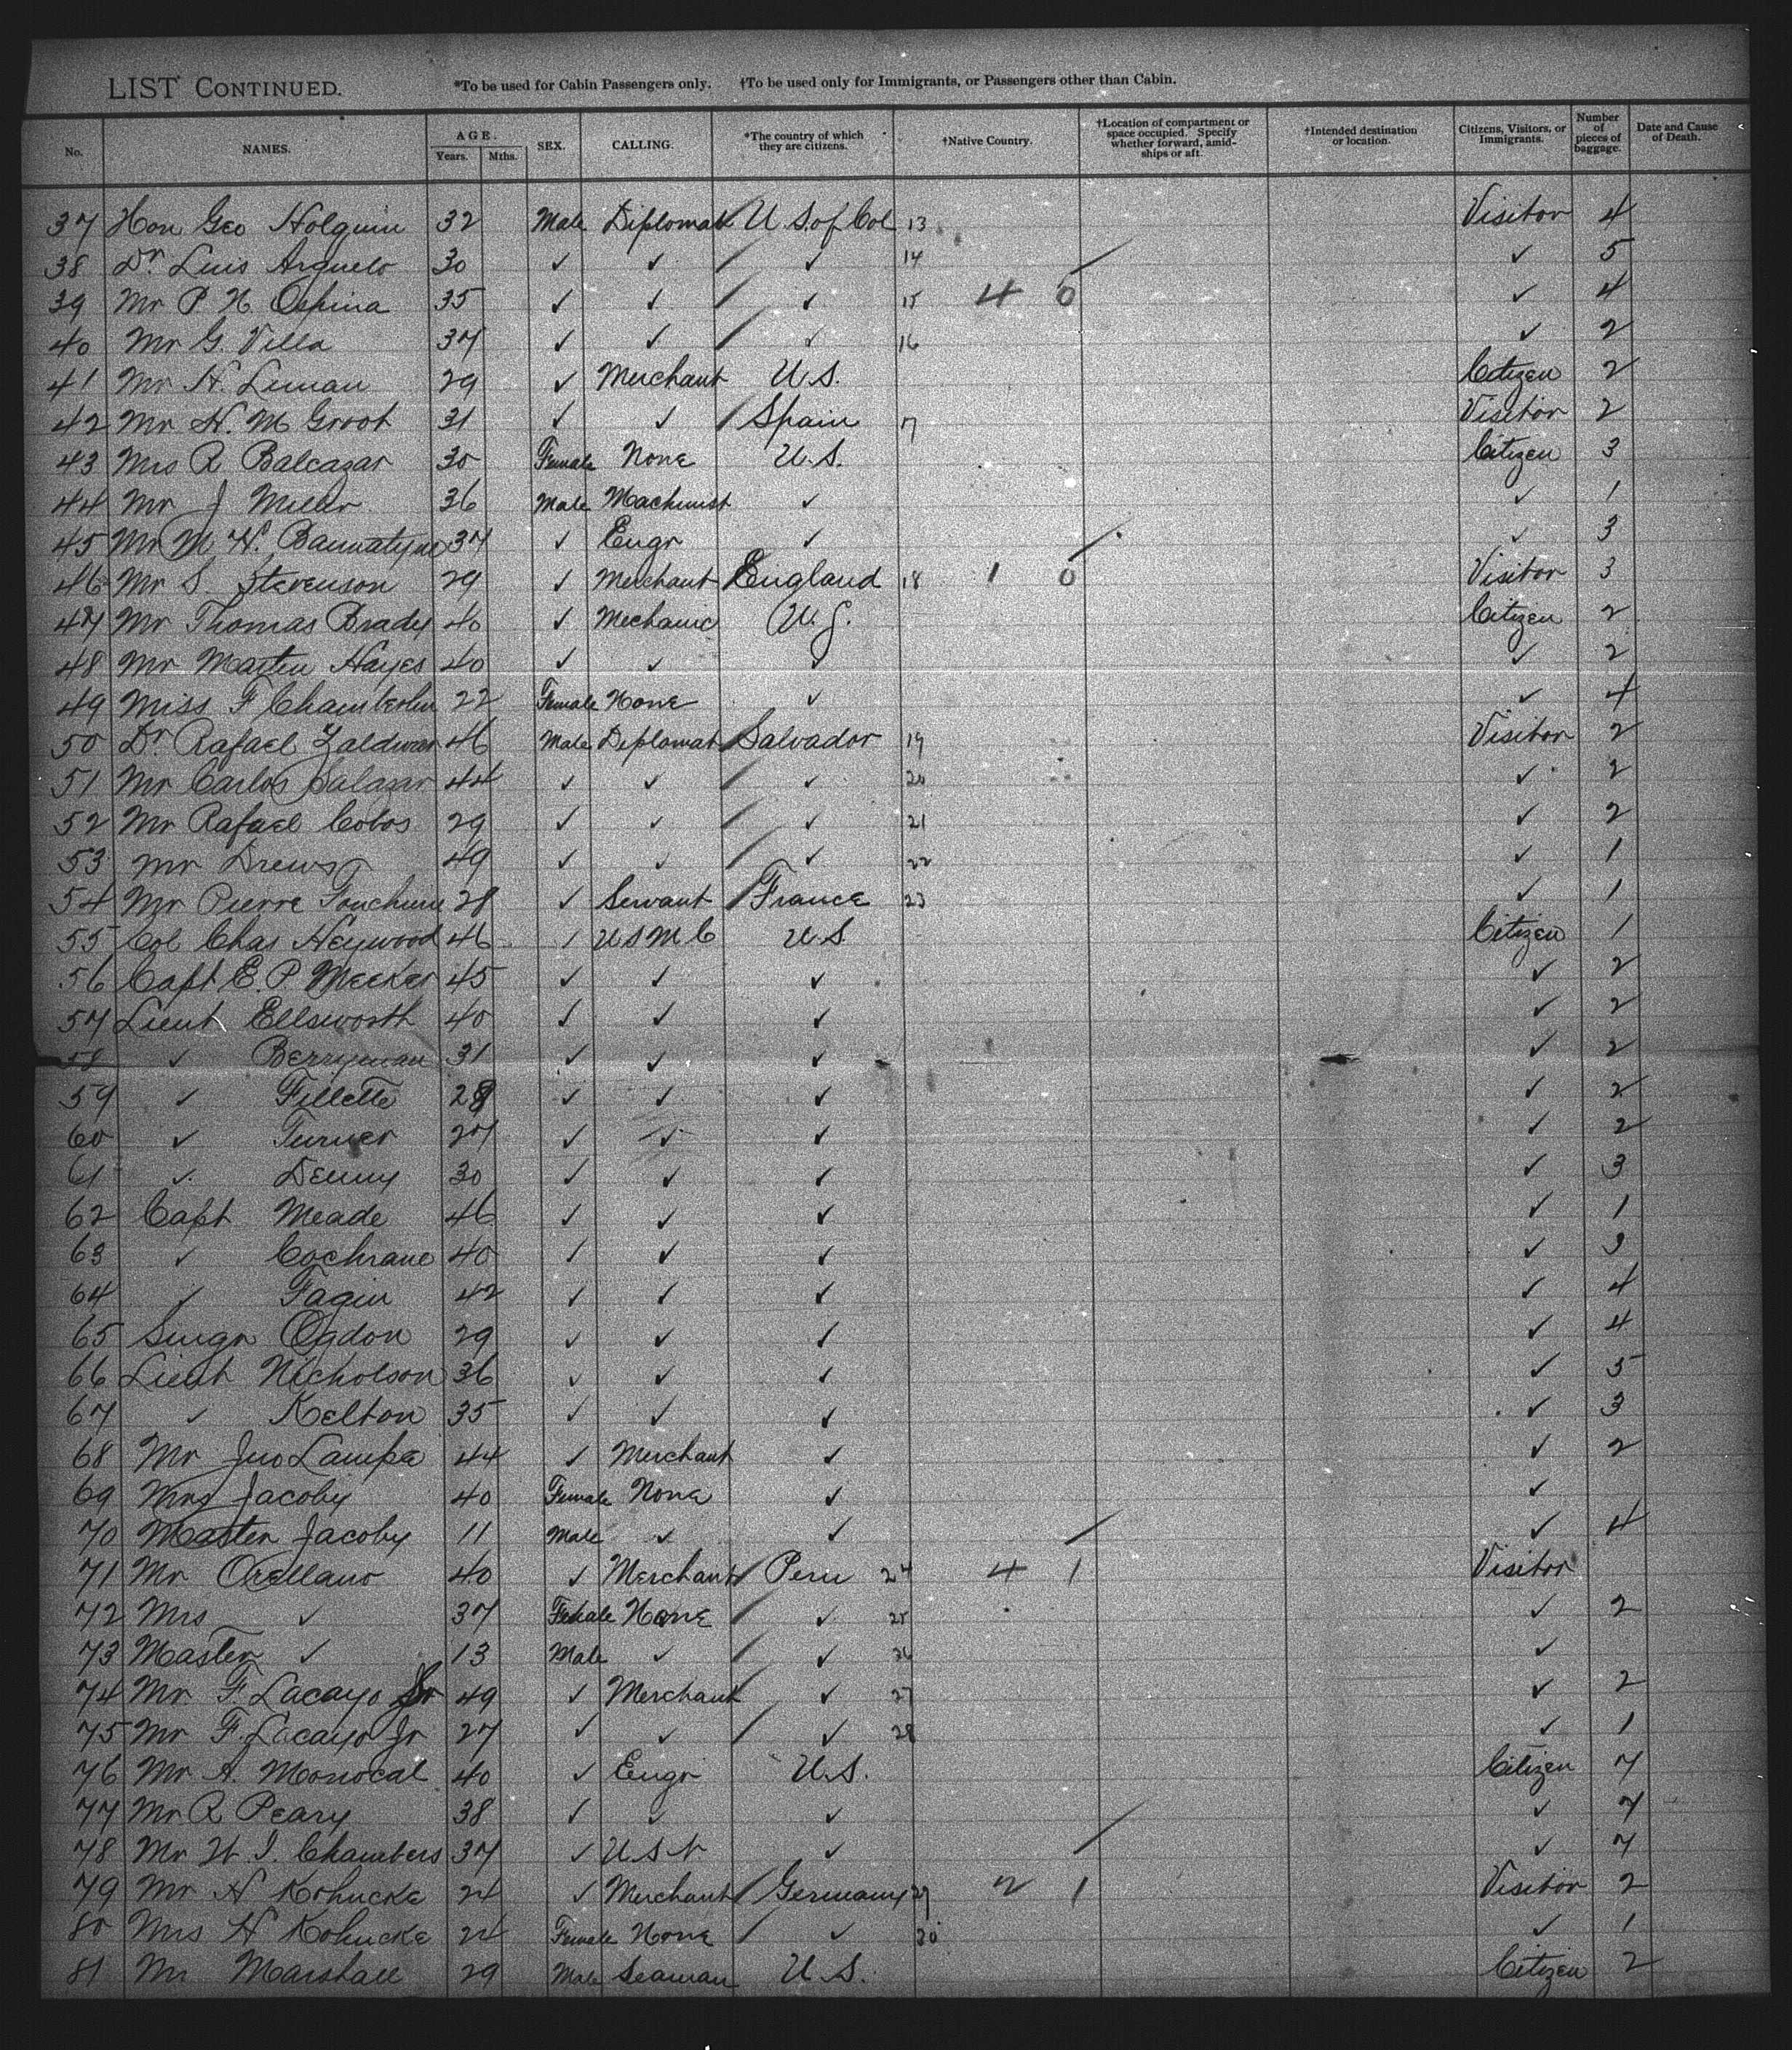 LIST CONTINUED. *To be used for Cabin Passengers only. †To be used only for Immigrants, or Passengers other than Cabin.
No. NAMES. AGE. Years. Mths. SEX. CALLING. *The country of which they are citizens. †Native Country. †Location of compartment or space occupied. Specify whether forward, amidships or aft. †Intended destination or location. Citizens, Visitors, or Immigrants. Number of pieces of baggage. Date and Cause of Death.
37 Hon Geo Holguin 32 Male Diplomat U.S. of Col 13 Visitor 4
38 Dr Luis Arguelo 30 ✓ ✓ ✓ 14 ✓ 5
39 Mr P N. Ospina 35 ✓ ✓ ✓ 15 4 0 ✓ 4
40 Mr G. Villa 37 ✓ ✓ ✓ 16 ✓ 2
41 Mr H. 29 ✓ Merchant U.S. Citizen 2
42 Mr H. M Groot 31 ✓ ✓ Spain 17 Visitor 2
43 Mrs R Balcazar 30 Female None U.S. Citizen 3
44 Mr J Miller 36 Male Machinist ✓ ✓ 1
45 Mr M. W. Bannatyne 37 ✓ Engr ✓ ✓ 3
46 Mr S. Stevenson 29 ✓ Merchant England 18 1 0 Visitor 3
47 Mr Thomas Brady 40 ✓ Mechanic U.S. Citizen 2
48 Mr Martin Hayes 40 ✓ ✓ ✓ ✓ 2
49 Miss F Chamberlin 22 Female None ✓ ✓ 4
50 Dr Rafael Zaldivar 46 Male Diplomat Salvador 19 Visitor 2
51 Mr Carlos Salazar 44 ✓ ✓ ✓ 20 ✓ 2
52 Mr Rafael Cobos 29 ✓ ✓ ✓ 21 ✓ 2
53 Mr Drews 49 ✓ ✓ ✓ 22 ✓ 1
54 Mr Pierre 28 ✓ Servant France 23 ✓ 1
55 Col Chas Heywood 46 ✓ U S M C U.S. Citizen 1
56 Capt E. P. Meeker 45 ✓ ✓ ✓ ✓ 2
57 Lieut Ellsworth 40 ✓ ✓ ✓ ✓ 2
58 ✓ Berryman 31 ✓ ✓ ✓ ✓ 2
59 ✓ Fillette 28 ✓ ✓ ✓ ✓ 2
60 ✓ Turner 27 ✓ ✓ ✓ ✓ 2
61 ✓ Denny 30 ✓ ✓ ✓ ✓ 3
62 Capt Meade 46 ✓ ✓ ✓ ✓ 1
63 ✓ Cochrane 40 ✓ ✓ ✓ ✓ 3
64 ✓ Fagin 42 ✓ ✓ ✓ ✓ 4
65 Surgn Ogdon 29 ✓ ✓ ✓ ✓ 4
66 Lieut Nicholson 36 ✓ ✓ ✓ ✓ 5
67 ✓ Kelton 35 ✓ ✓ ✓ ✓ 3
68 Mr Jno Lampe 44 ✓ Merchant ✓ ✓ 2
69 Mrs Jacoby 40 Female None ✓ ✓
70 Master Jacoby 11 Male ✓ ✓ ✓ 4
71 Mr Orellano 40 ✓ Merchant Peru 24 4 1 Visitor
72 Mrs ✓ 37 Female None ✓ 25 ✓ 2
73 Master ✓ 13 Male ✓ ✓ 26 ✓
74 Mr F. Lacayo Sr 49 ✓ Merchant ✓ 27 ✓ 2
75 Mr F. Lacayo Jr 27 ✓ ✓ ✓ 28 ✓ 1
76 Mr A. Monocal 40 ✓ Engr U.S. Citizen 7
77 Mr R Peary 38 ✓ ✓ ✓ ✓ 7
78 Mr W. I. Chambers 37 ✓ U S N ✓ ✓ 7
79 Mr H Kohncke 24 ✓ Merchant Germany 29 2 1 Visitor 2
80 Mrs H Kohncke 24 Female None ✓ 30 ✓ 1
81 Mr Marshall 29 Male Seaman U.S. Citizen 2